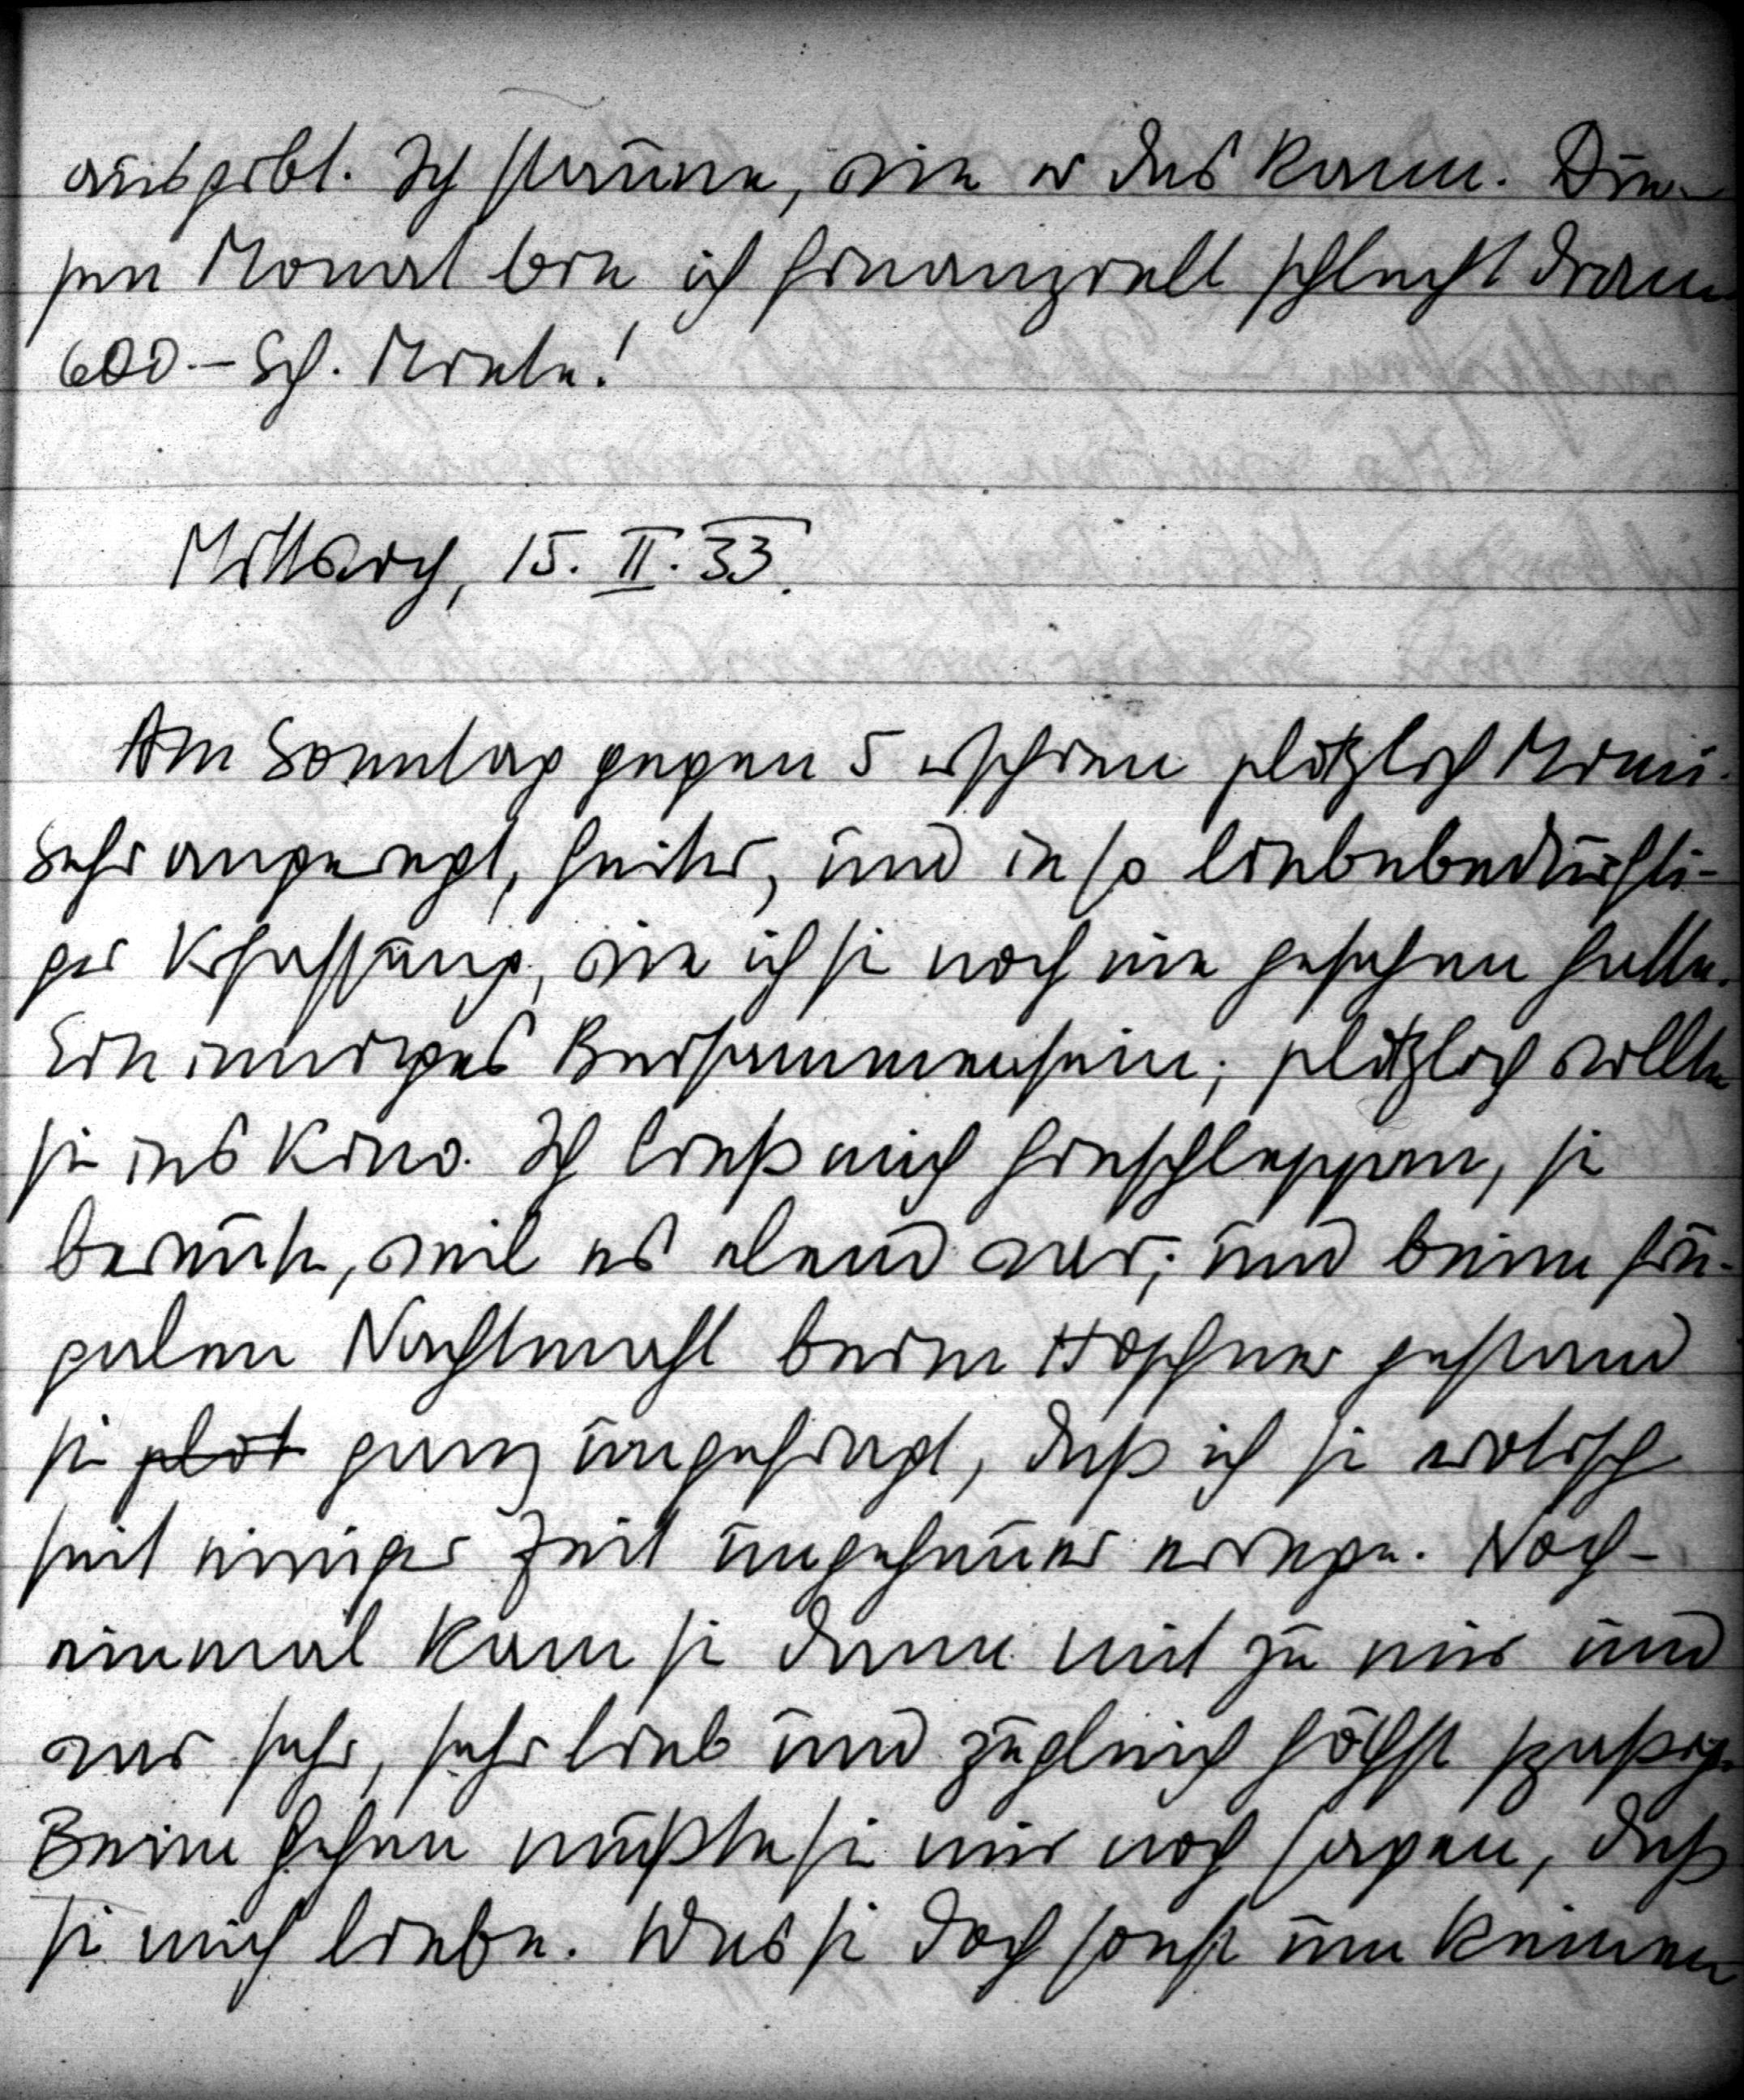 ausgibt. Ich staune, wie er das kann. Die-
sen Monat bin ich finanziell schlecht dran
600.– Sch. Miete!
Mittwoch, 15. II. 33.
Am Sonntag gegen 5 erschien plötzlich Mimi.
Sehr angeregt, heiter, und in so liebebedürfti-
ger Verfassung, wie ich sie noch nie gesehen hatte.
Ein inniges Beisammensein; plötzlich wollte
sie ins Kino. Ich ließ mich hinschleppen, sie
bereute, weil es elend war; und beim fru-
galen Nachtmahl beim Höschner gestand
sie plöt ganz ungefragt, daß ich sie erotisch
seit einiger Zeit ungeheuer errege. Noch-
einmal kam sie dann mit zu mir und
war sehr, sehr lieb und zugleich höchst spaßig.
Beim Gehen mußte sie mir noch sagen, daß
sie mich liebe. Was sie doch sonst um keinen